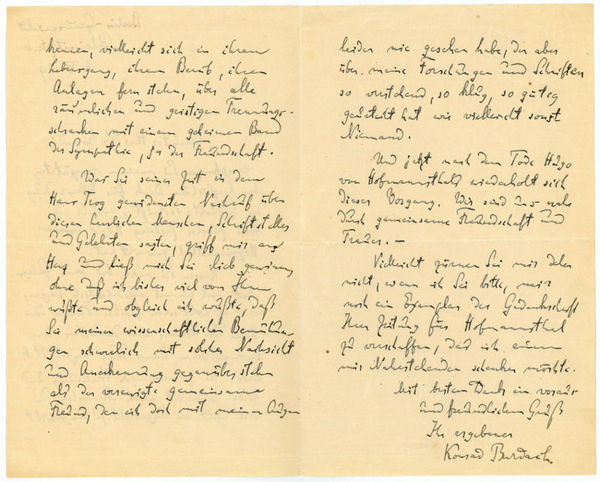 kennen, vielleicht sich in ihrem
Lebensgang, ihrem Beruf, ihren
Anlagen fern stehen, über alle
räumlichen und geistigen Trennungs-
schranken mit einem geheimen Band
der Sympathie, ja der Freundschaft.
Was Sie seiner Zeit in dem
Hans Trog gewidmeten Nachruf über
diesen herrlichen Menschen, Schriftsteller
und Gelehrten sagten, griff mir ans
Herz und ließ mich Sie lieb gewinnen,
ohne daß ich bisher viel von Ihnen
wußte und obgleich ich wußte, daß
Sie meinen wissenschaftlichen Bemühun-
gen schwerlich mit solcher Nachsicht
und Anerkennung gegenüber stehen
als der verewigte gemeinsame
Freund, den ich doch mit meinen Augen
leider nie gesehen habe, der aber
über meine Forschungen und Schriften
so verstehend, so klug, so gütig
geurteilt hat wie vielleicht sonst
Niemand.
Und jetzt nach dem Tode Hugo
von Hofmannsthals wiederholt sich
dieser Vorgang. Wir sind uns nahe
durch gemeinsame Freundschaft und
Trauer. —
Vielleicht zürnen Sie mir daher
nicht, wenn ich Sie bitte, mir
noch ein Exemplar des
Ihrer Zeitung für Hofmannsthal
zu verschaffen, das ich einem
mir Nahestehenden schenken möchte.
Mit bestem Dank im voraus
und freundlichem Gruß
Ihr ergebener
Konrad Burdach.